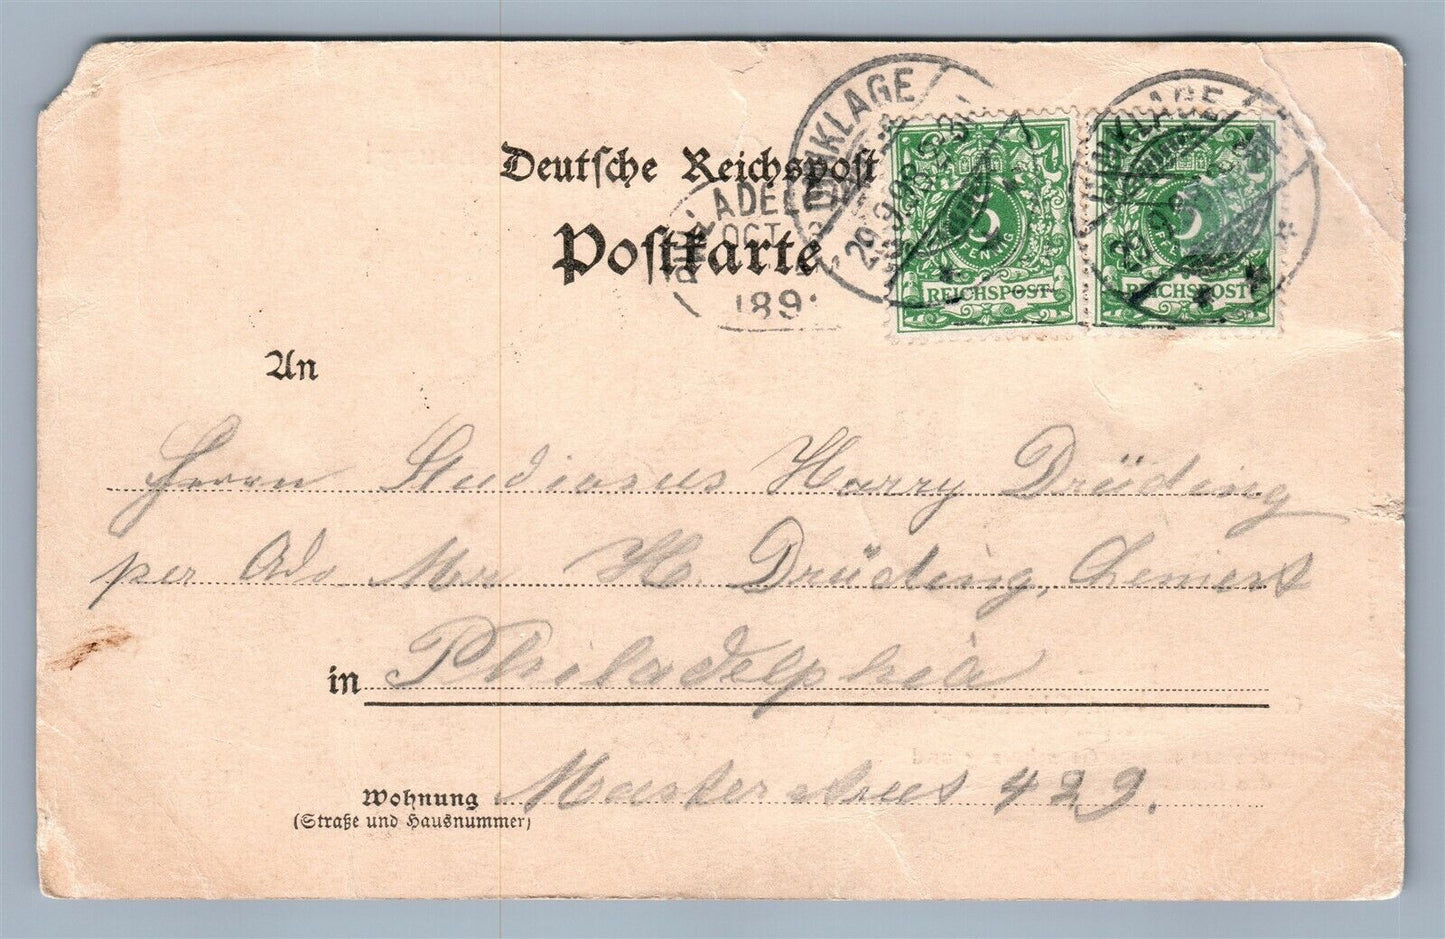 Deutsche Reichspost
Postkarte
DINKLAGE
29.9.98
DINKLAGE
29.9.98
PHILADEL
OCT
189
5
PFENNIG
REICHSPOST
5
PFENNIG
REICHSPOST
An
Herrn Studiosus Harry Drüding
per Ads. Mr. H. Drüding,
in Philadelphia
Wohnung Master street 429.
(Straße und Hausnummer)